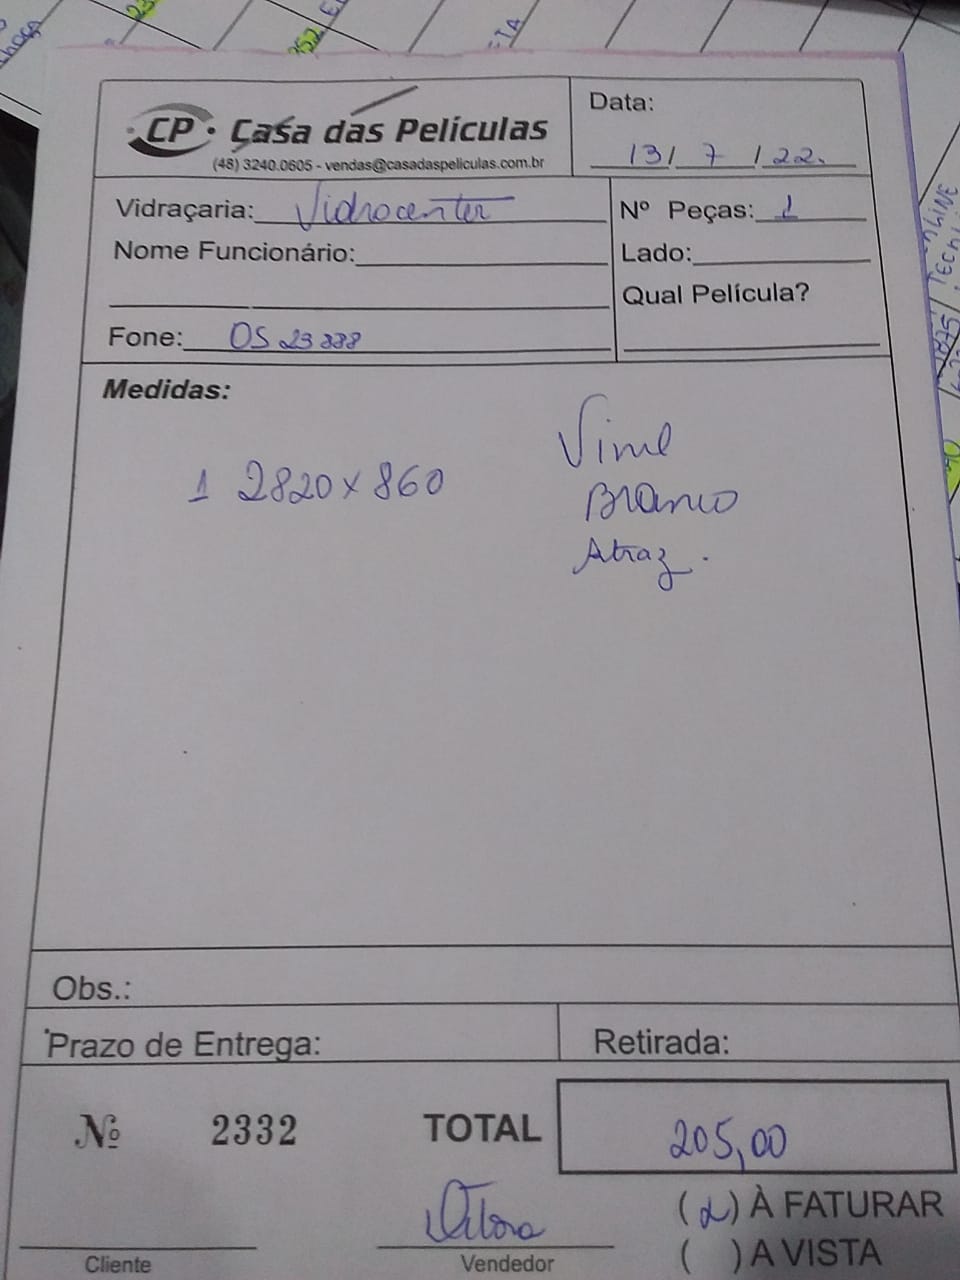 CP · Casa das Películas
(48) 3240.0605 - vendas@casadaspeliculas.com.br
Data:
13/ 7 / 22.
Vidraçaria: Vidrocenter
Nº Peças: 1
Nome Funcionário:
Lado:
Qual Película?
Fone: OS 23888
Medidas:
1 2820 x 860
Vinil
Branco
Atraz.
Obs.:
Prazo de Entrega:
Retirada:
Nº 2332
TOTAL
205,00
Cliente
Vendedor
(x) À FATURAR
( ) A VISTA